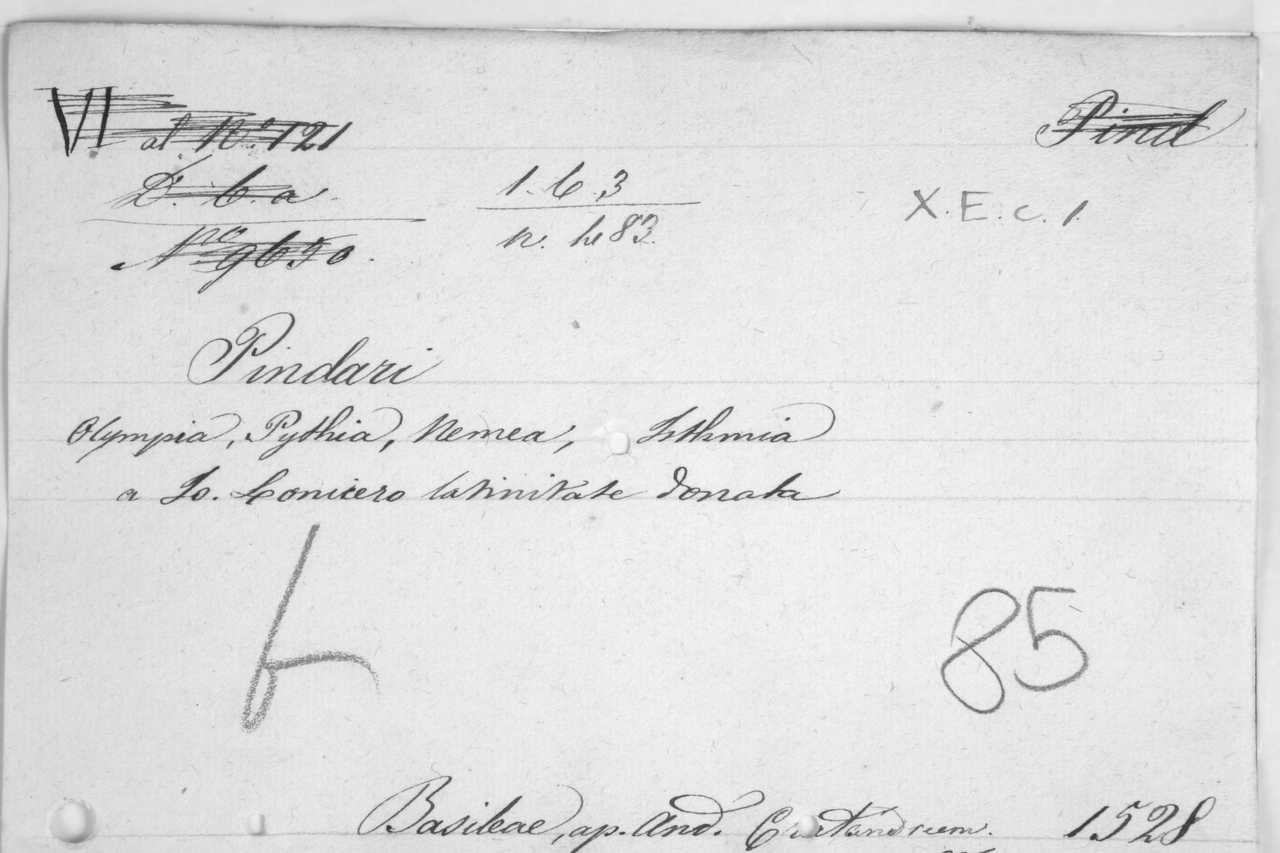 VI al. No. 121
Pind
D. b. a.
1. b. 3
X. E. c. 1.
Nro 9650.
Pindari
Olympia, Pythia, Nemea, Isthmia
a Jo. Lonicero latinitate donata
85
Basileae, ap. And. Cratandrum. 1528